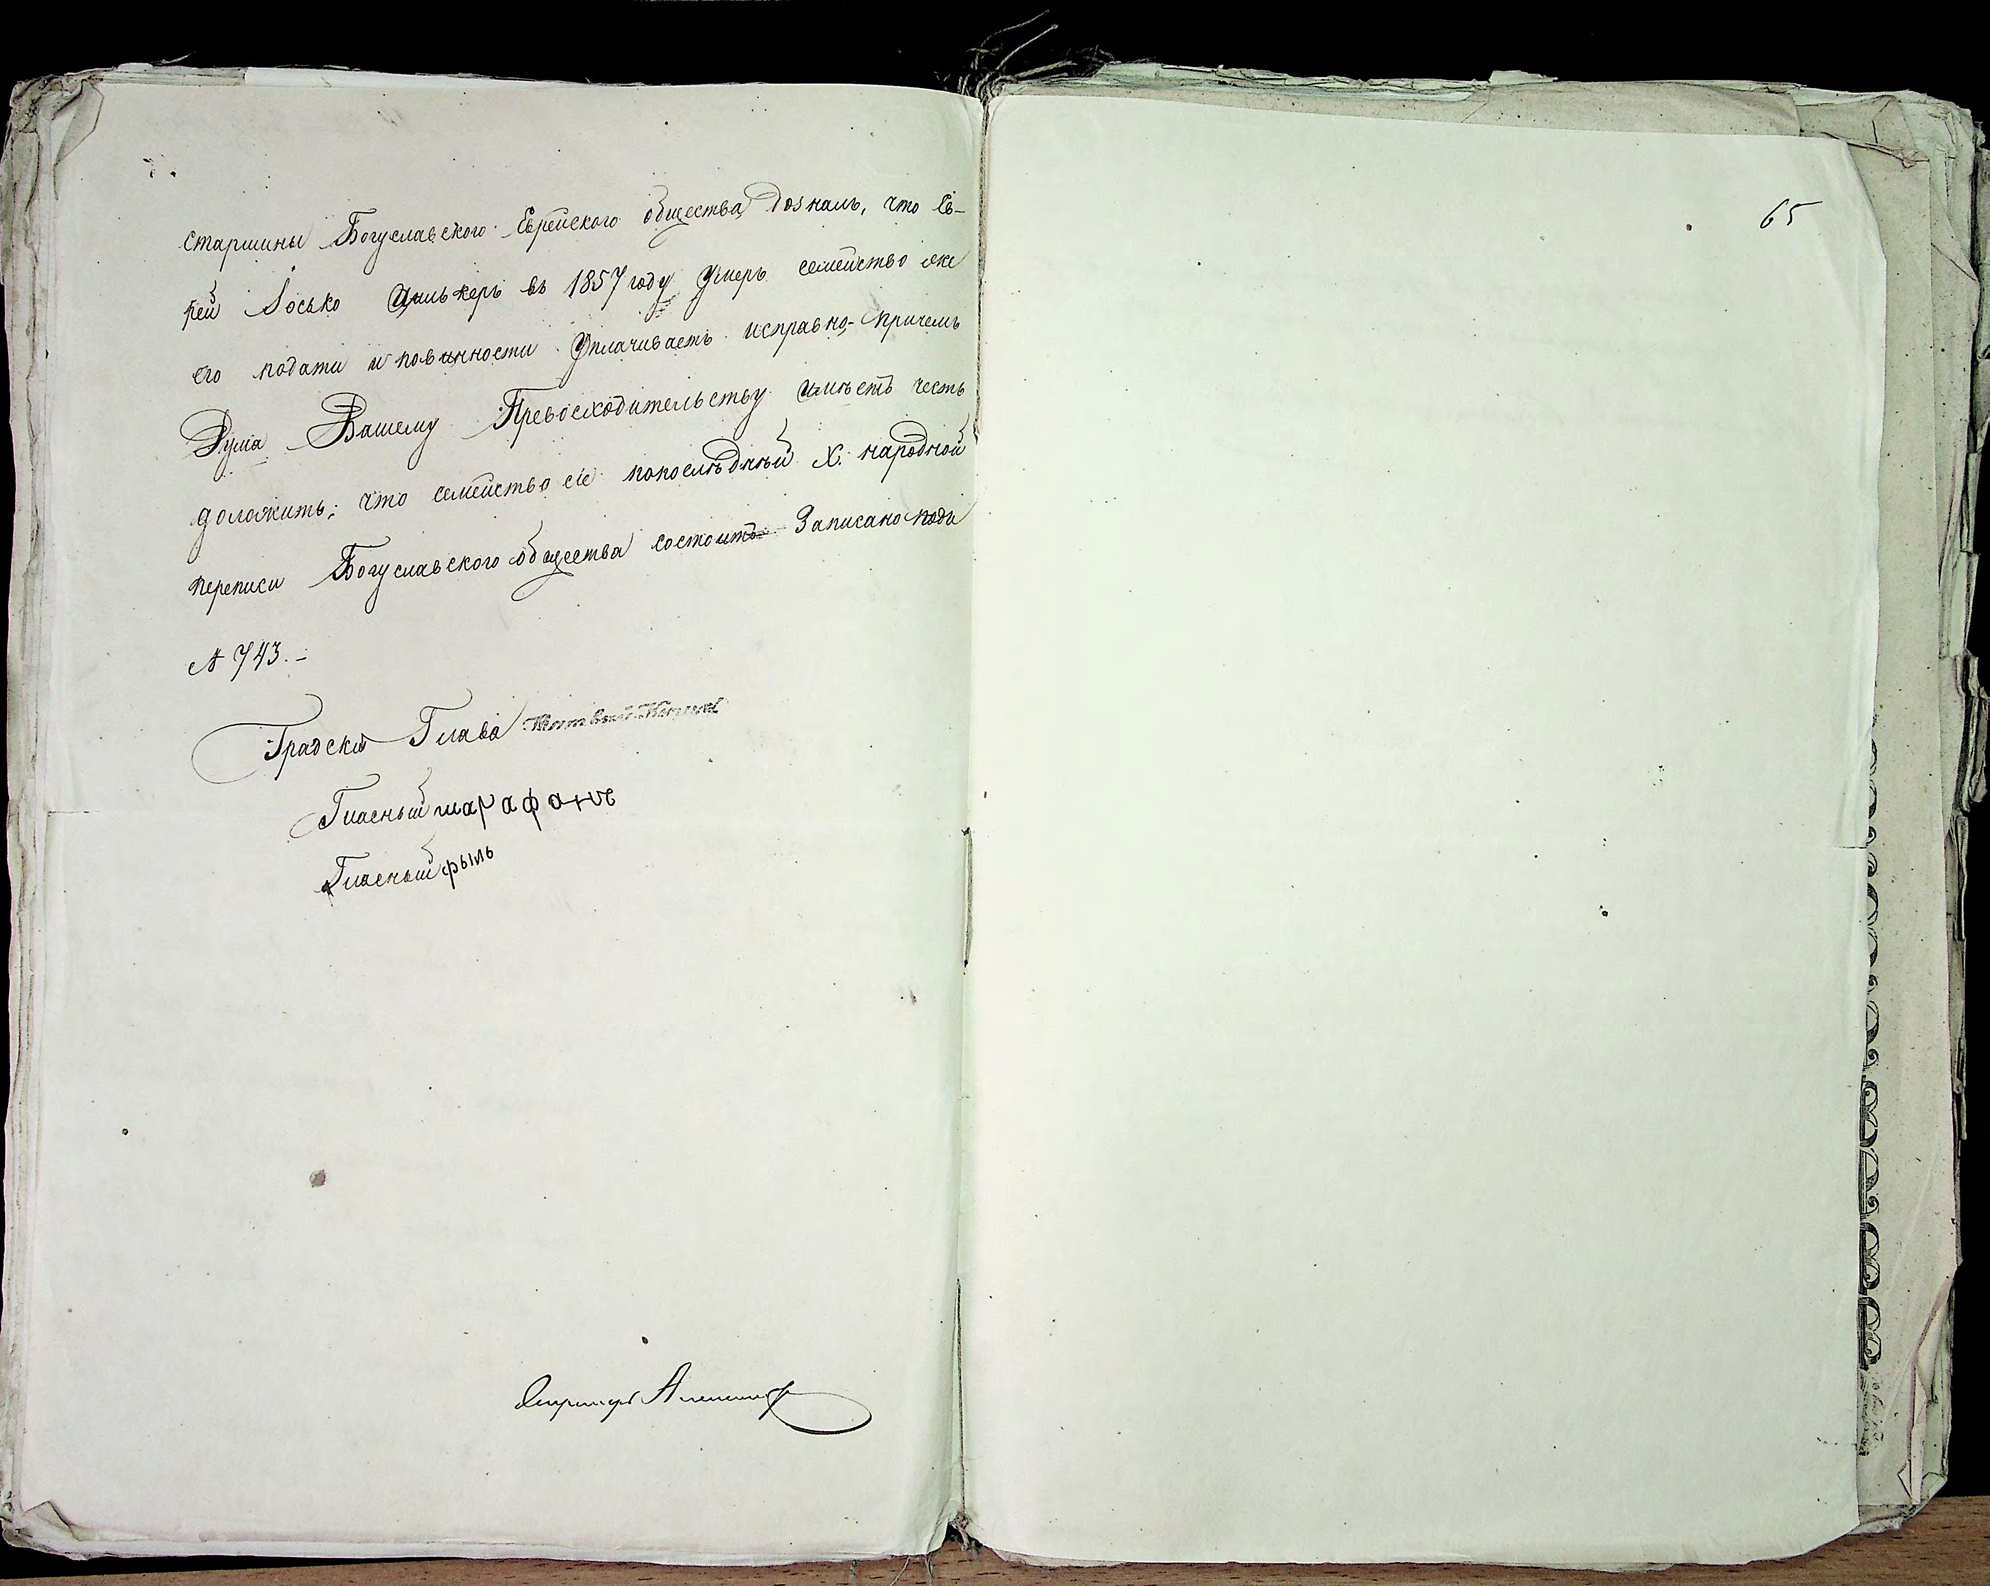 старшины Богуславского Еврейского общества дозналъ, что Ев-
рей Іосько Цилькеръ въ 1857 году умеръ семейство же
его подати и повинности уплачиваетъ исправно - причемъ
Дума Вашему Превосходительству имѣетъ честь
доложить, что семейство сіе попослѣдней X. народной
переписи Богуславского общества состоитъ Записано подъ
№ 743. -
Градскій Глава
Гласный шарафанъ
Гласный фыль
65